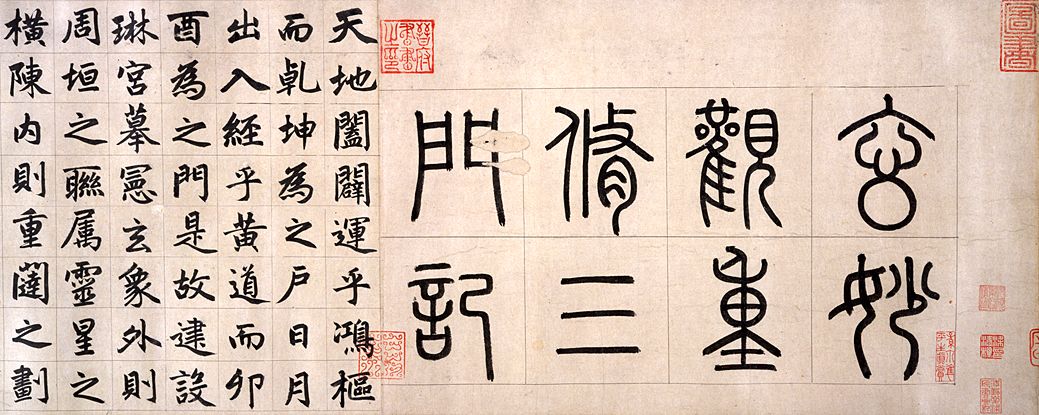 玄妙
觀重
脩三
門記
天地闔闢運乎鴻樞
而乹坤為之户日月
出入經乎黃道而卯
酉為之門是故建設
琳宮摹憲玄象外則
周垣之聯属靈星之
橫陳内則重闥之劃
晉府書畫之印